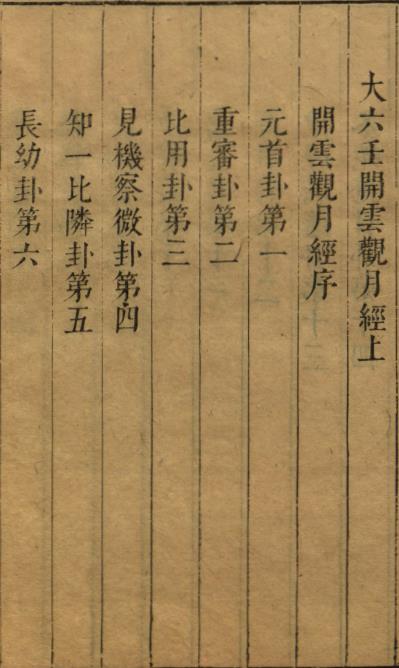 大六壬開雲觀月經上
開雲觀月經序
元首卦第一
重審卦第二
比用卦第三
見機察微卦第四
知一比隣卦第五
長幼卦第六